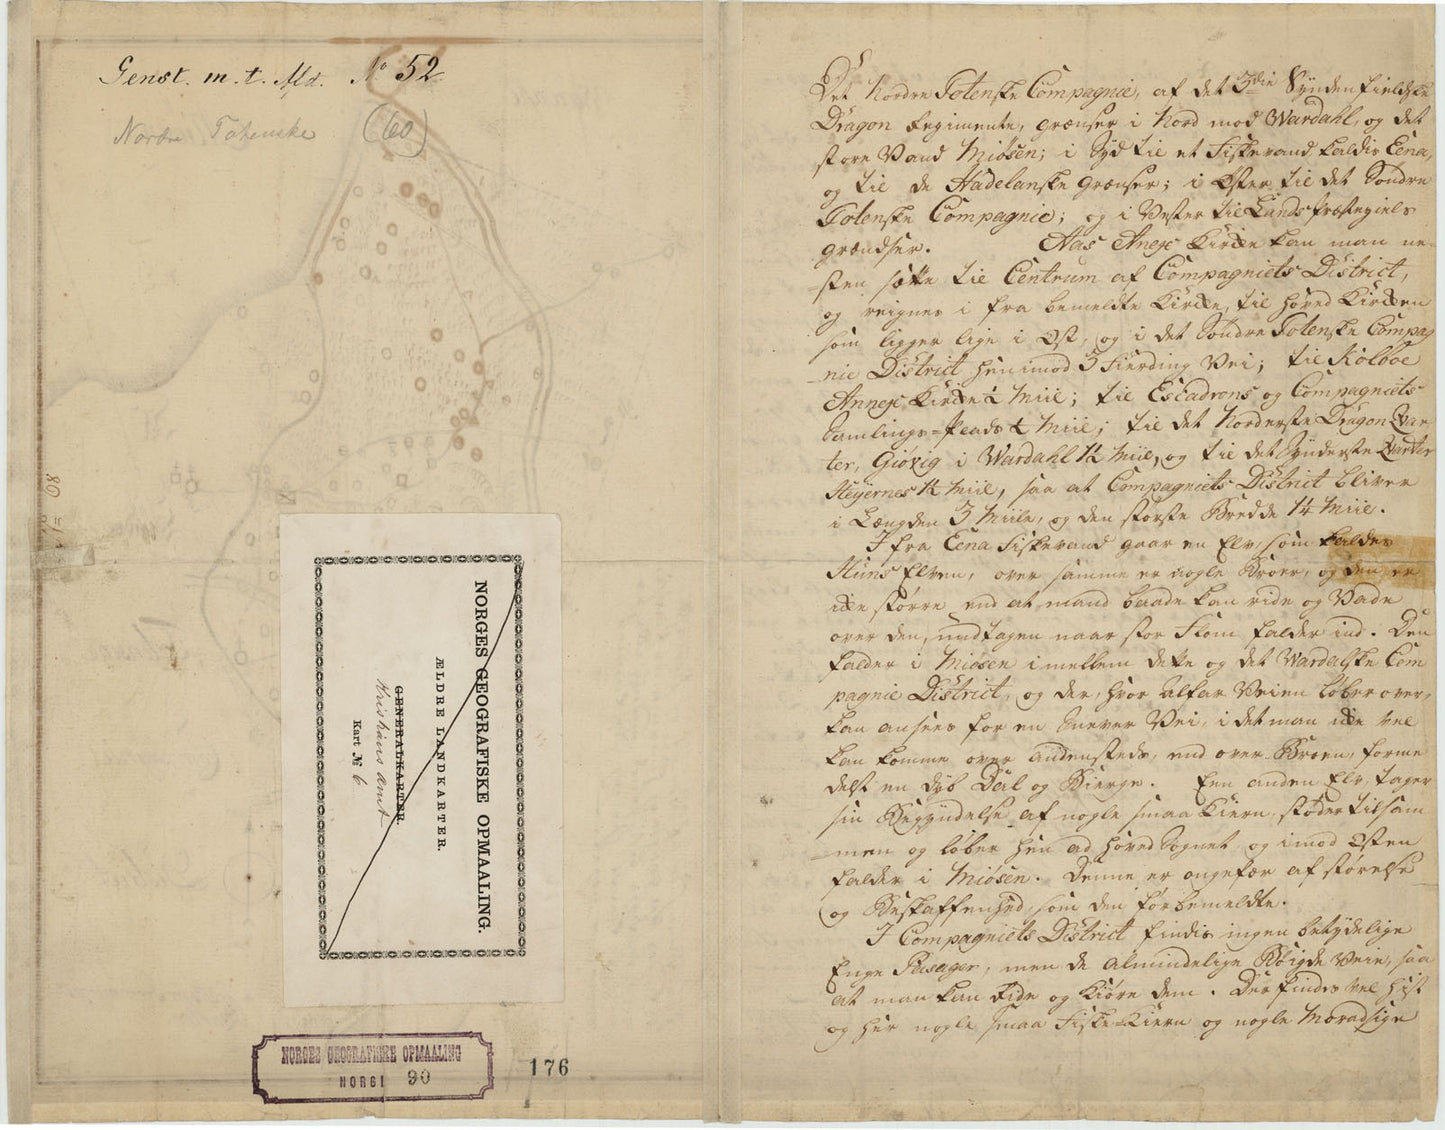 Genst. m. t. Afd. No 52
Nordre Totenske (60)
NORGES GEOGRAFISKE OPMAALING.
ÆLDRE LANDKARTER.
GENERALKARTER.
Kristians amt
Kart No 6
NORGES GEOGRAFISKE OPMAALING
NORGE 90
176
Det Nordre Totenske Compagnie, af det 3die Syndenfieldske
Dragon Regimente, grænser i Nord mod Wardahl, og det
store Vand Miøsen; i Syd til et Fiskevand kaldis Eena,
og til de Hadelanske Grænser; i Øster til det Søndre
Totenske Compagnie; og i Vester til Lands Præstegiels
grændser. Aas Anex Kirke kan man ne-
sten sætte til Centrum af Compagniets District,
og reignes i fra bemeldte Kirke, til Hoved Kirken
som ligger lige i Øst, og i det Søndre Totenske Compag
nie District henimod 3 Fierding Vei; til Kolboe
Annex Kirke ½ Miil; til Escadrons og Compagniets
Samlings-Plads ½ Miil; til det Norderste Dragon Qvar-
ter, Giøvig i Wardahl 1½ Miil, og til det Synderste Qvarter
Heyernes 1½ Miil, saa at Compagniets District bliver
i Længden 3 Miile, og den største Bredde 1¼ Miil.
I fra Eena Fiskevand gaar en Elv, som kaldes
Huns Elven, over samme er nogle Broer, og den er
ikke større end at mand baade kan ride og Vade
over den, undtagen naar stor Flom falder ind. Den
falder i Miøsen imellem dette og det Wardalske Com
pagnie District, og der, hvor Alfar Veien løber over,
kan ansees for en Snever Vei, i det man ikke vel
kan komme over andensteds, end over Broen, forme
delst en dyb Dal og Bierge. Een anden Elv, tager
sin Begyndelse af nogle smaa Kiern, støder tilsam
men og løber hen ad Hoved Sognet og imod Østen
falder i Miøsen. Denne er ongefær af størelse
og Beskaffenhed, som den førbemeldte.
I Compagniets District findis ingen betydelige
Enge Passager, men de almindelige Bøigde Veie, saa
at man kan Ride og Kiøre dem. Der findes vel hist
og her nogle smaa Fiske-Kiern og nogle Moradsige